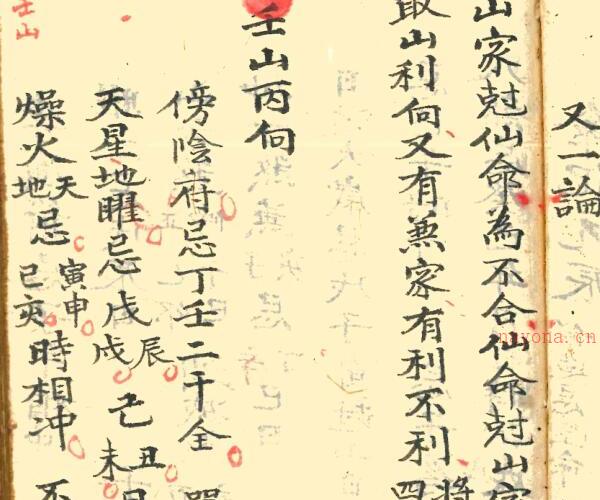 又一論
山家尅仙命為不合仙命尅山家
取山利向又有兼家有利不利
四
壬山丙向
傍陰府忌丁壬二干全
天星地曜忌戊辰戌己丑未
燥火天地忌寅申巳亥時相冲
不
壬山
nayona.cn